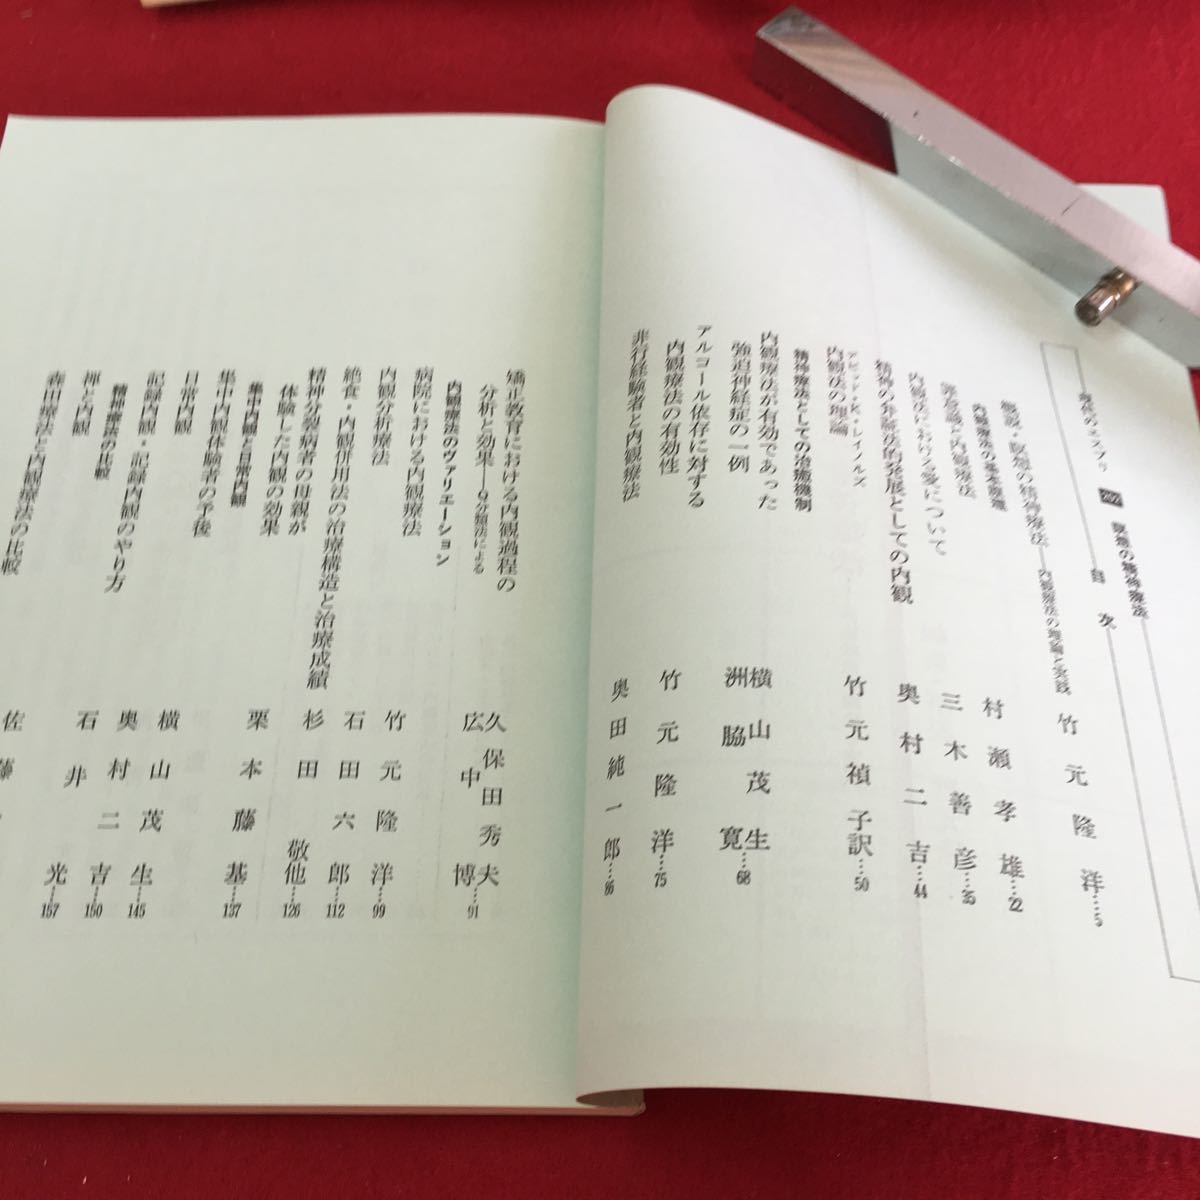 現代のエスプリ 202 瞑想の精神療法
目次
解説・瞑想の精神療法——内観療法の理論と実践 竹元隆洋…5
内観療法の基本原理
内観療法 村瀬孝雄…22
内観法における愛について 三木善彦…35
精神の弁証法的発展としての内観 奥村二吉…44
デビッド・K・レイノルズ
内観療法の理論 竹元禎子訳…50
精神療法としての治癒機制
内観療法が有効であった
強迫神経症の一例 横山茂生
洲脇寛…68
アルコール依存に対する
内観療法の有効性 竹元隆洋…75
非行経験者と内観療法 奥田純一郎…86
矯正教育における内観過程の
分析と効果—Q分類法による 久保田秀夫
広中博…91
内観療法のヴァリエーション
病院における内観療法
内観分析療法 竹元隆洋…99
絶食・内観併用法の治療構造と治療成績 石田六郎…112
精神分裂病者の母親が
体験した内観の効果 杉田敬他…126
集中内観と日常内観
集中内観体験者の予後 栗本藤基…137
日常内観
記録内観・記録内観のやり方 横山茂生…145
精神療法の比較
禅と内観 奥村二吉…150
森田療法と内観療法の比較 石井光…157
佐藤